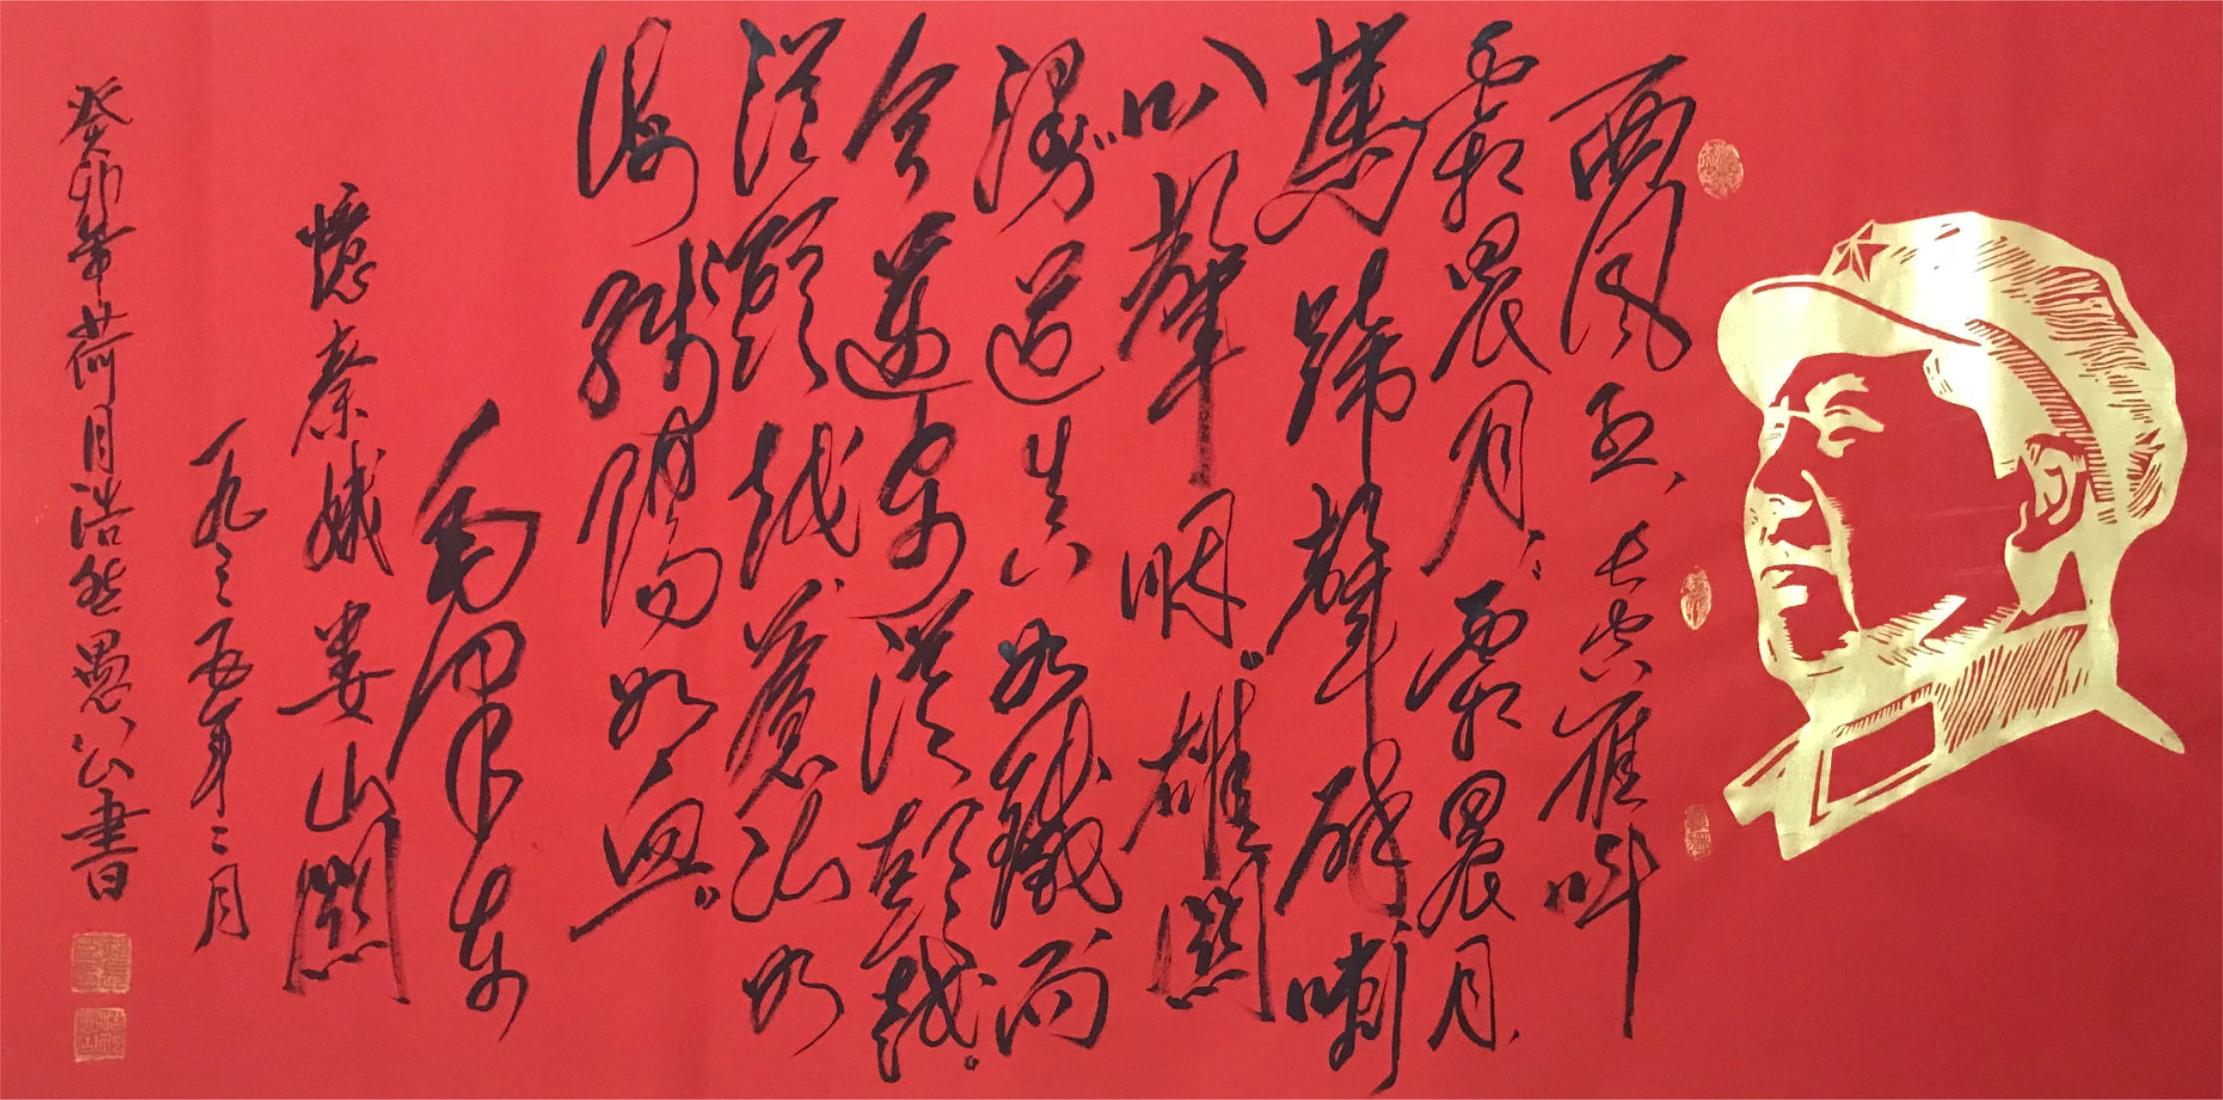 西风烈、长空雁叫
霜晨月。霜晨月，
馬蹄聲碎喇
叭聲咽。雄關
漫道真如鐵而
今邁步從頭越。
從頭越蒼山如
海殘陽如血。
毛泽东
憶秦娥娄山關
一九三五年二月
癸卯年荷月浩然愚公書